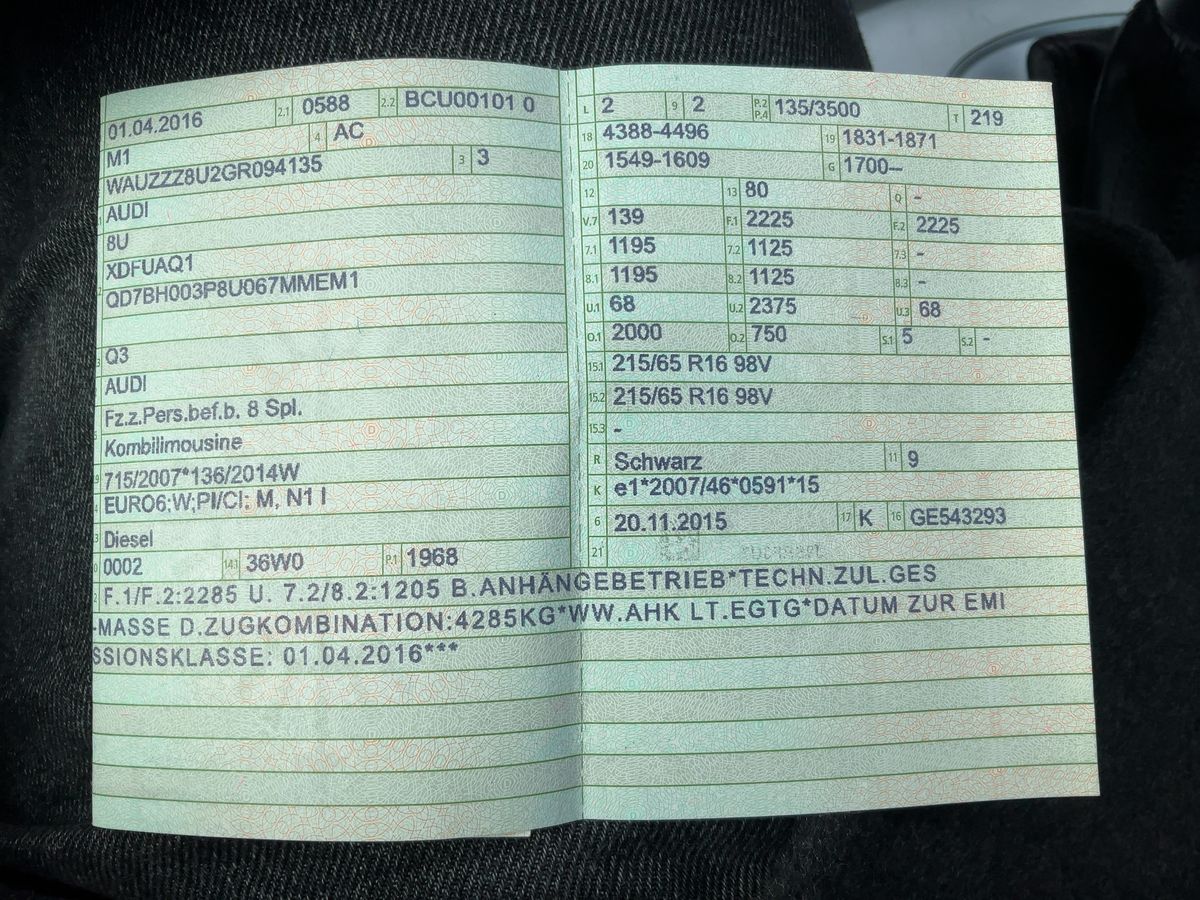 01.04.2016 2.1 0588 2.2 BCU00101 0
M1 4 AC
WAUZZZ8U2GR094135 3 3
AUDI
8U
XDFUAQ1
QD7BH003P8U067MMEM1
Q3
AUDI
Fz.z.Pers.bef.b. 8 Spl.
Kombilimousine
715/2007*136/2014W
EURO6;W;PI/CI; M, N1 I
Diesel
0002 14.1 36W0 P.1 1968
L 2 9 2 P.2 P.4 135/3500 T 219
18 4388-4496 19 1831-1871
20 1549-1609 G 1700--
12 13 80 Q -
V.7 139 F.1 2225 F.2 2225
7.1 1195 7.2 1125 7.3 -
8.1 1195 8.2 1125 8.3 -
U.1 68 U.2 2375 U.3 68
O.1 2000 O.2 750 S.1 5 S.2 -
15.1 215/65 R16 98V
15.2 215/65 R16 98V
15.3 -
R Schwarz 11 9
K e1*2007/46*0591*15
6 20.11.2015 17 K 16 GE543293
21
F.1/F.2:2285 U. 7.2/8.2:1205 B.ANHÄNGEBETRIEB*TECHN.ZUL.GES
-MASSE D.ZUGKOMBINATION:4285KG*WW.AHK LT.EGTG*DATUM ZUR EMI
SSIONSKLASSE: 01.04.2016***